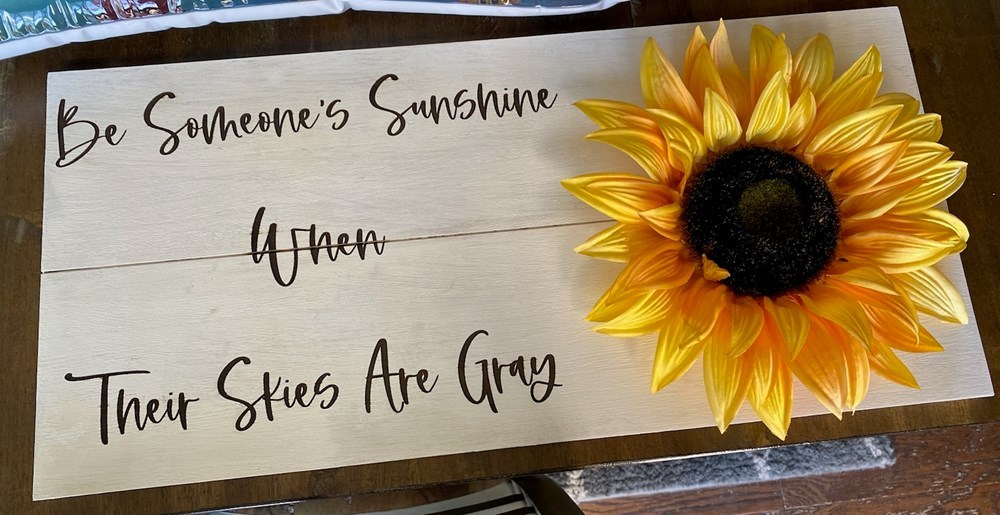 Be Someone's Sunshine
When
Their Skies Are Gray